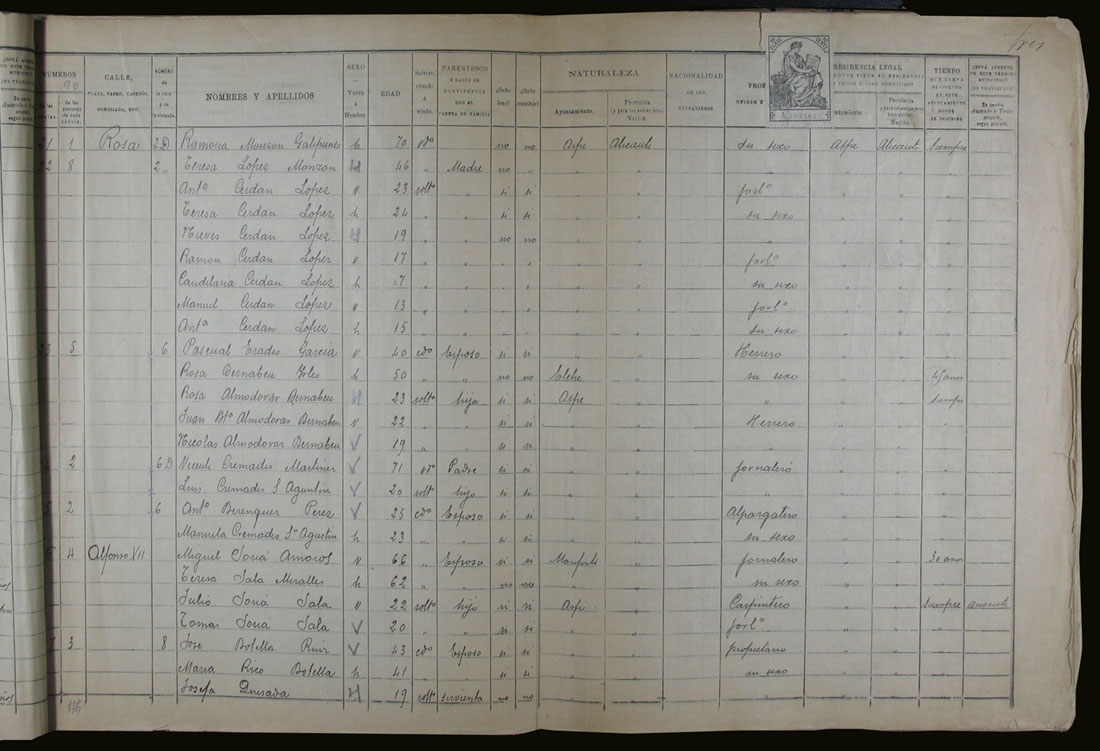 Tres
NÚMEROS
90
de las personas de cada cédula.
CALLE,
PLAZA, PASEO, CASERÍO, CORTIJADA, ETC.
NÚMERO de la casa ó de la vivienda
NOMBRES Y APELLIDOS
SEXO
Varón ó Hembra
EDAD
Soltero, casado ó viudo.
PARENTESCO
Ó RAZÓN DE CONVIVENCIA CON EL CABEZA DE FAMILIA
¿Sabe leer?
¿Sabe escribir?
NATURALEZA
Ayuntamiento.
Provincia
(y para los extranjeros) Nación.
NACIONALIDAD
DE LOS EXTRANJEROS
RESIDENCIA LEGAL
Provincia
TIEMPO
QUE LLEVA RESIDIENDO EN ESTE AYUNTAMIENTO
1 Rosa 2D Ramona Monson Galipienso h 70 vdo no no Aspe Alicante su sexo Aspe Alicante Siempre
8 2 " Teresa López Monzon H 46 " Madre no " " " " " " "
Antª Cerdan López v 23 soltº " si si " " jorlº " " "
Teresa Cerdan López h 24 " " si si " " su sexo " " "
Nieves Cerdan López H 19 " " no no " " " " " "
Ramon Cerdan López v 17 " " " " " " jorlº " " "
Candilaria Cerdan López h 17 " " " " " " su sexo " " "
Manuel Cerdan López v 13 " " " " " " jorlº " " "
Antª Cerdan López h 15 " " " " " " su sexo " " "
5 6 Pascual Erades Garcia v 40 cdo Esposo si si " " Herrero " " "
Rosa Bernabeu h 50 " " no no Elche " su sexo " " años
Rosa Almodovar Bernabeu H 23 soltº hija si si Aspe " " " " Siempre
Juan Btª Almodovar Bernabeu v 22 " " si si " " Herrero " " "
Nicolas Almodovar Bernabeu V 19 " " si si " " " " " "
2 6D Vicente Cremades Martinez V 71 vdo Padre si si " " jornalero " " "
Luis Cremades S Agustin V 20 soltº hijo si si " " " " " "
2 6 Antº Berenguer Perez V 25 cdo Esposo si si " " Alpargatero " " "
Manuela Cremades Sn Agustin h 23 " " si si " " su sexo " " "
4 Alfonso XII Miguel Soriá Amoros v 66 " Esposo si si Monforte " jornalero " " 30 años
Teresa Sala Miralles h 62 " " no no " " su sexo " " "
Julio Soriá Sala v 22 soltº hijo si si Aspe " Carpintero " " Siempre ausente
Tomas Soriá Sala V 20 " " si si " " jorlº " " "
3 8 Jose Botella Ruiz V 43 cdo Esposo si si " " propietario " " "
Maria Rico Botella h 41 " " " " " " su sexo " " "
Josefa Quesada H 19 soltº sirvienta no no " " " " " "
116